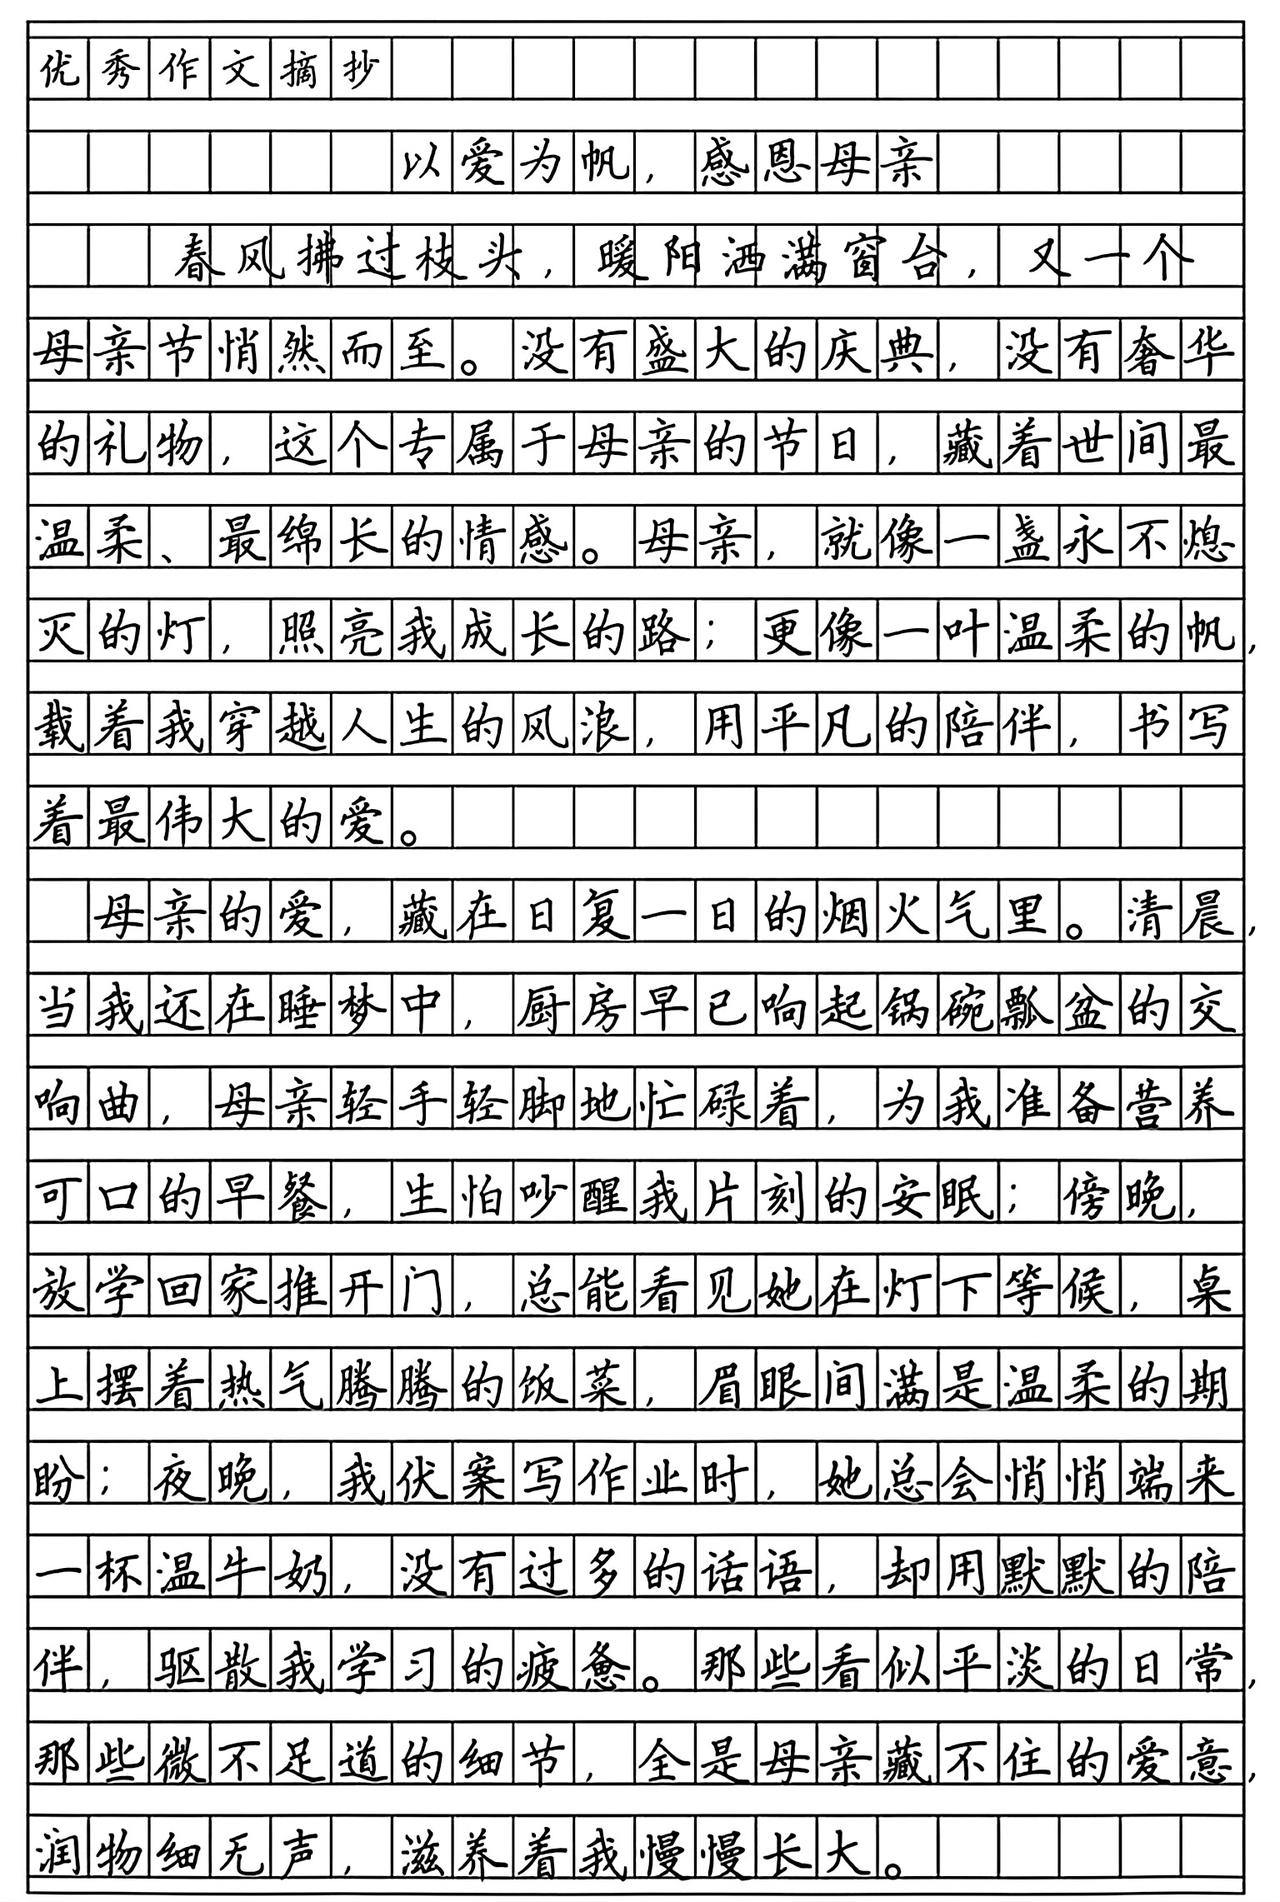 优秀作文摘抄
以爱为帆，感恩母亲
春风拂过枝头，暖阳洒满窗台，又一个
母亲节悄然而至。没有盛大的庆典，没有奢华
的礼物，这个专属于母亲的节日，藏着世间最
温柔、最绵长的情感。母亲，就像一盏永不熄
灭的灯，照亮我成长的路；更像一叶温柔的帆，
载着我穿越人生的风浪，用平凡的陪伴，书写
着最伟大的爱。
母亲的爱，藏在日复一日的烟火气里。清晨，
当我还在睡梦中，厨房早已响起锅碗瓢盆的交
响曲，母亲轻手轻脚地忙碌着，为我准备营养
可口的早餐，生怕吵醒我片刻的安眠；傍晚，
放学回家推开门，总能看见她在灯下等候，桌
上摆着热气腾腾的饭菜，眉眼间满是温柔的期
盼；夜晚，我伏案写作业时，她总会悄悄端来
一杯温牛奶，没有过多的话语，却用默默的陪
伴，驱散我学习的疲惫。那些看似平淡的日常，
那些微不足道的细节，全是母亲藏不住的爱意，
润物细无声，滋养着我慢慢长大。